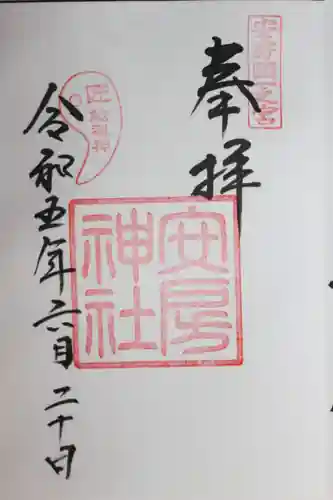 安房国一之宮
奉拝
安房
神社
匠総祖神
令和五年六月二十日